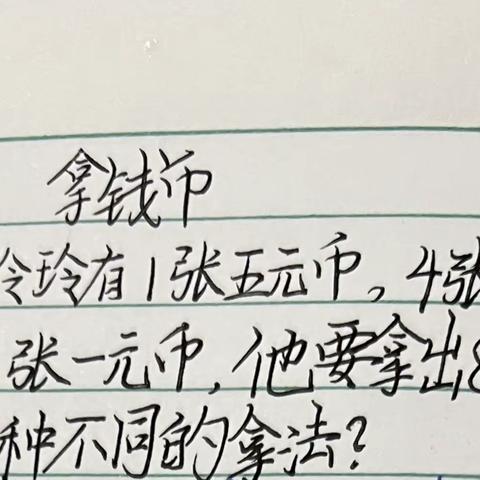 拿钱币
玲玲有1张五元币,4张
张一元币,他要拿出8
种不同的拿法?